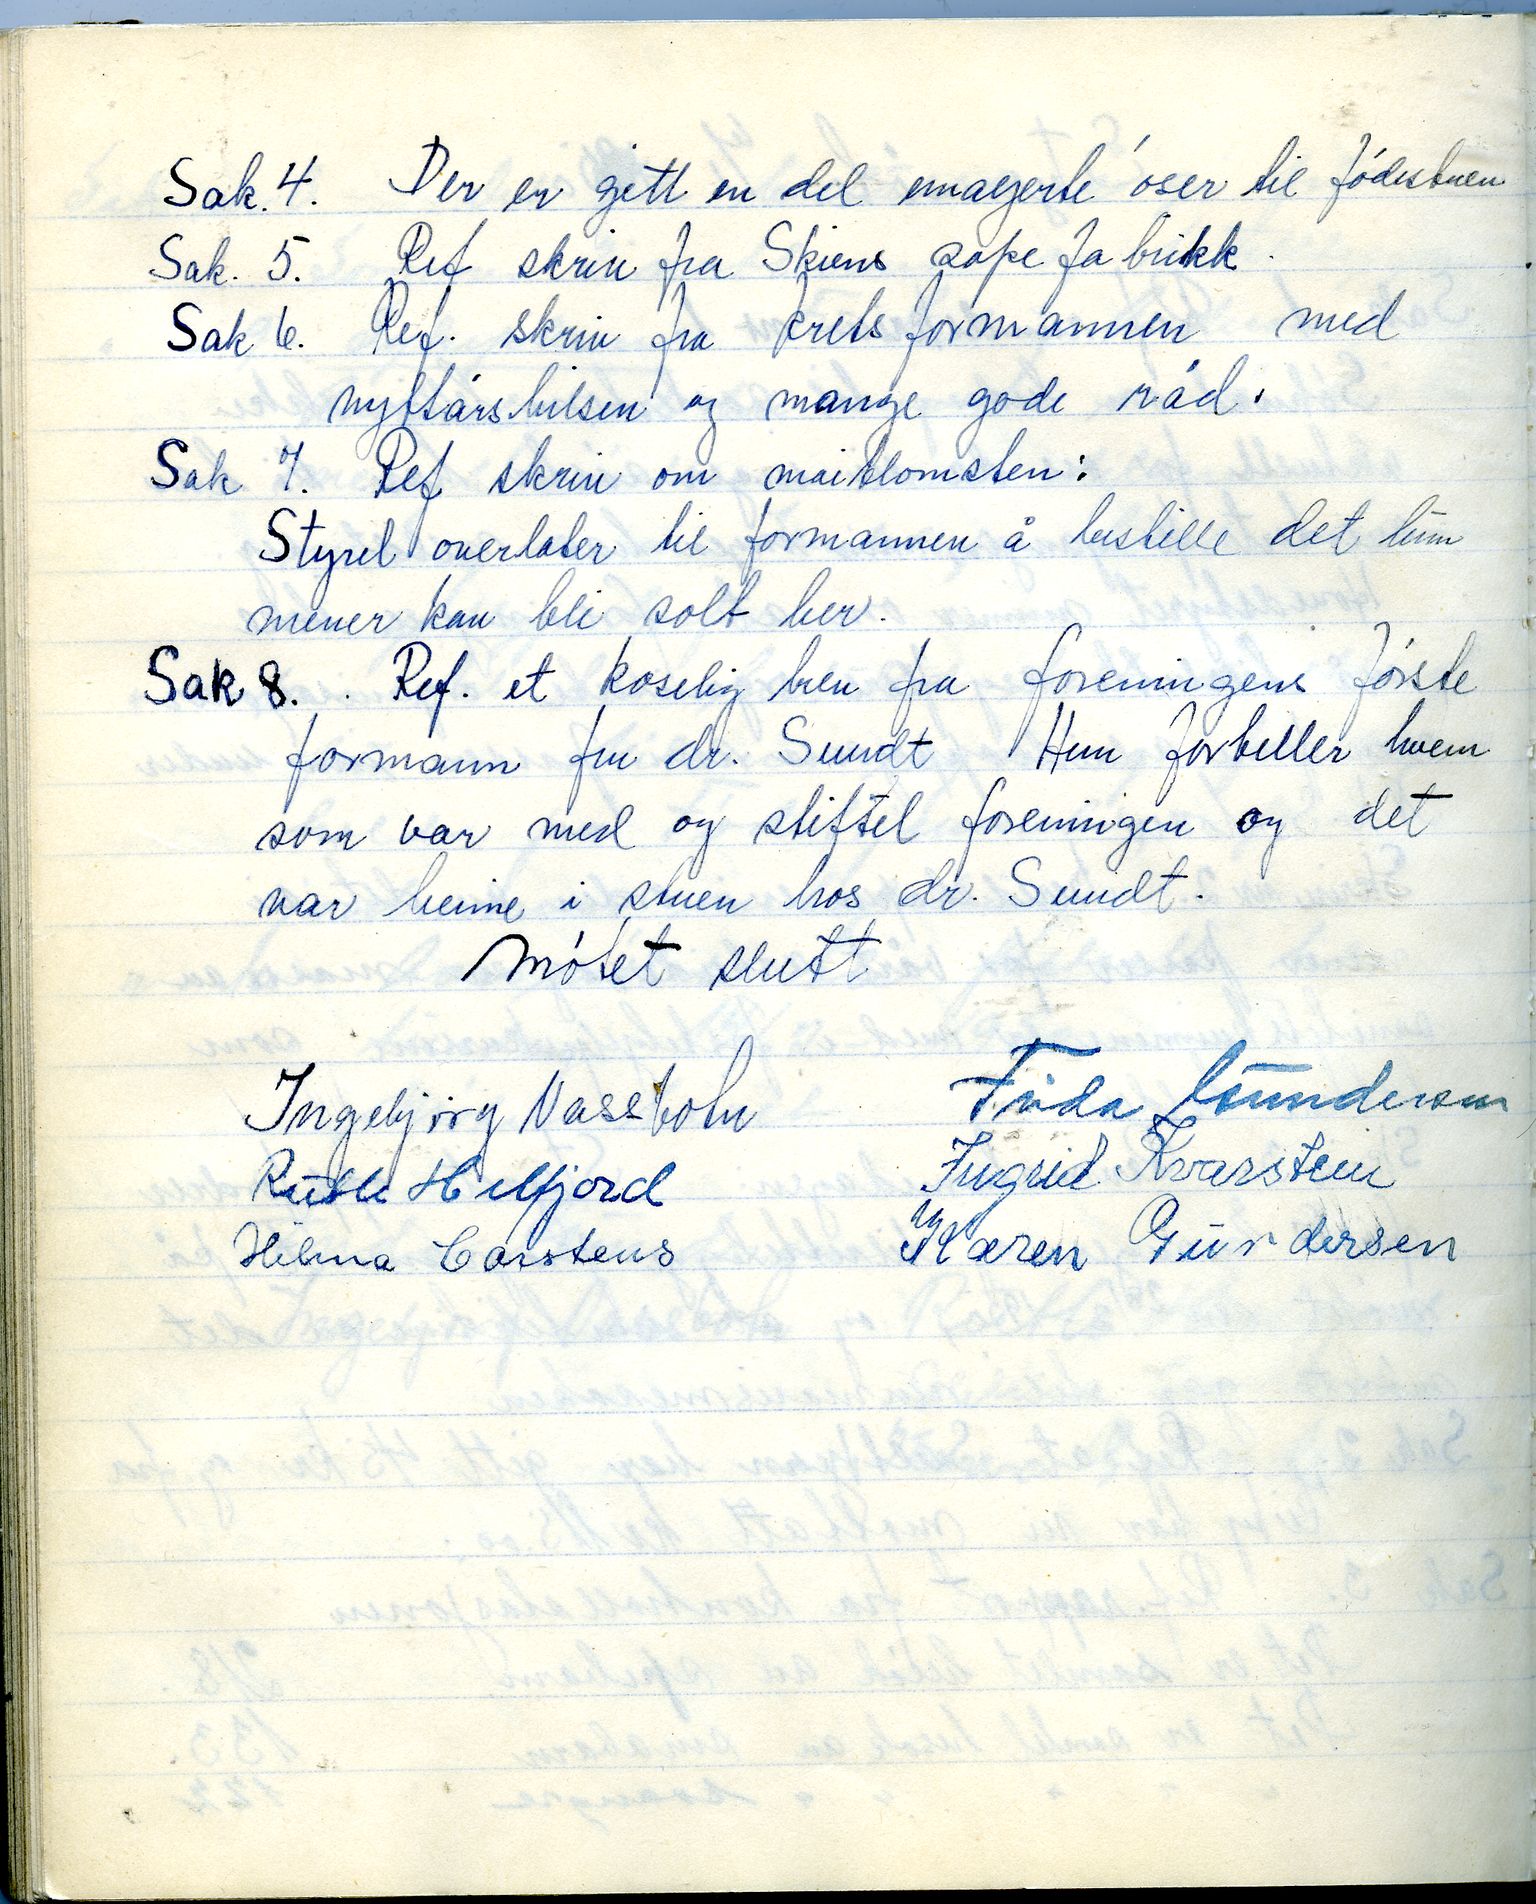 Sak. 4. Der er gitt en del emaljerte øser til fødestuen
Sak. 5. Ref skriv fra Skiens sape fabrikk.
Sak 6. Ref. skriv fra kretsformannen med
nyttårshilsen og mange gode råd.
Sak 7. Ref skriv om maiblomsten:
Styret overlater til formannen å bestille det hun
mener kan bli solt her.
Sak 8. Ref. et koselig brev fra foreningens første
formann fru dr. Sundt Hun forteller hvem
som var med og stiftet foreningen og det
var heime i stuen hos dr. Sundt.
Møtet slutt
Ingebjørg Vassbotn Frida Gundersen
Ruth Hilfjord Ingrid Kvarstein
Hilma Carstens Karen Gundersen